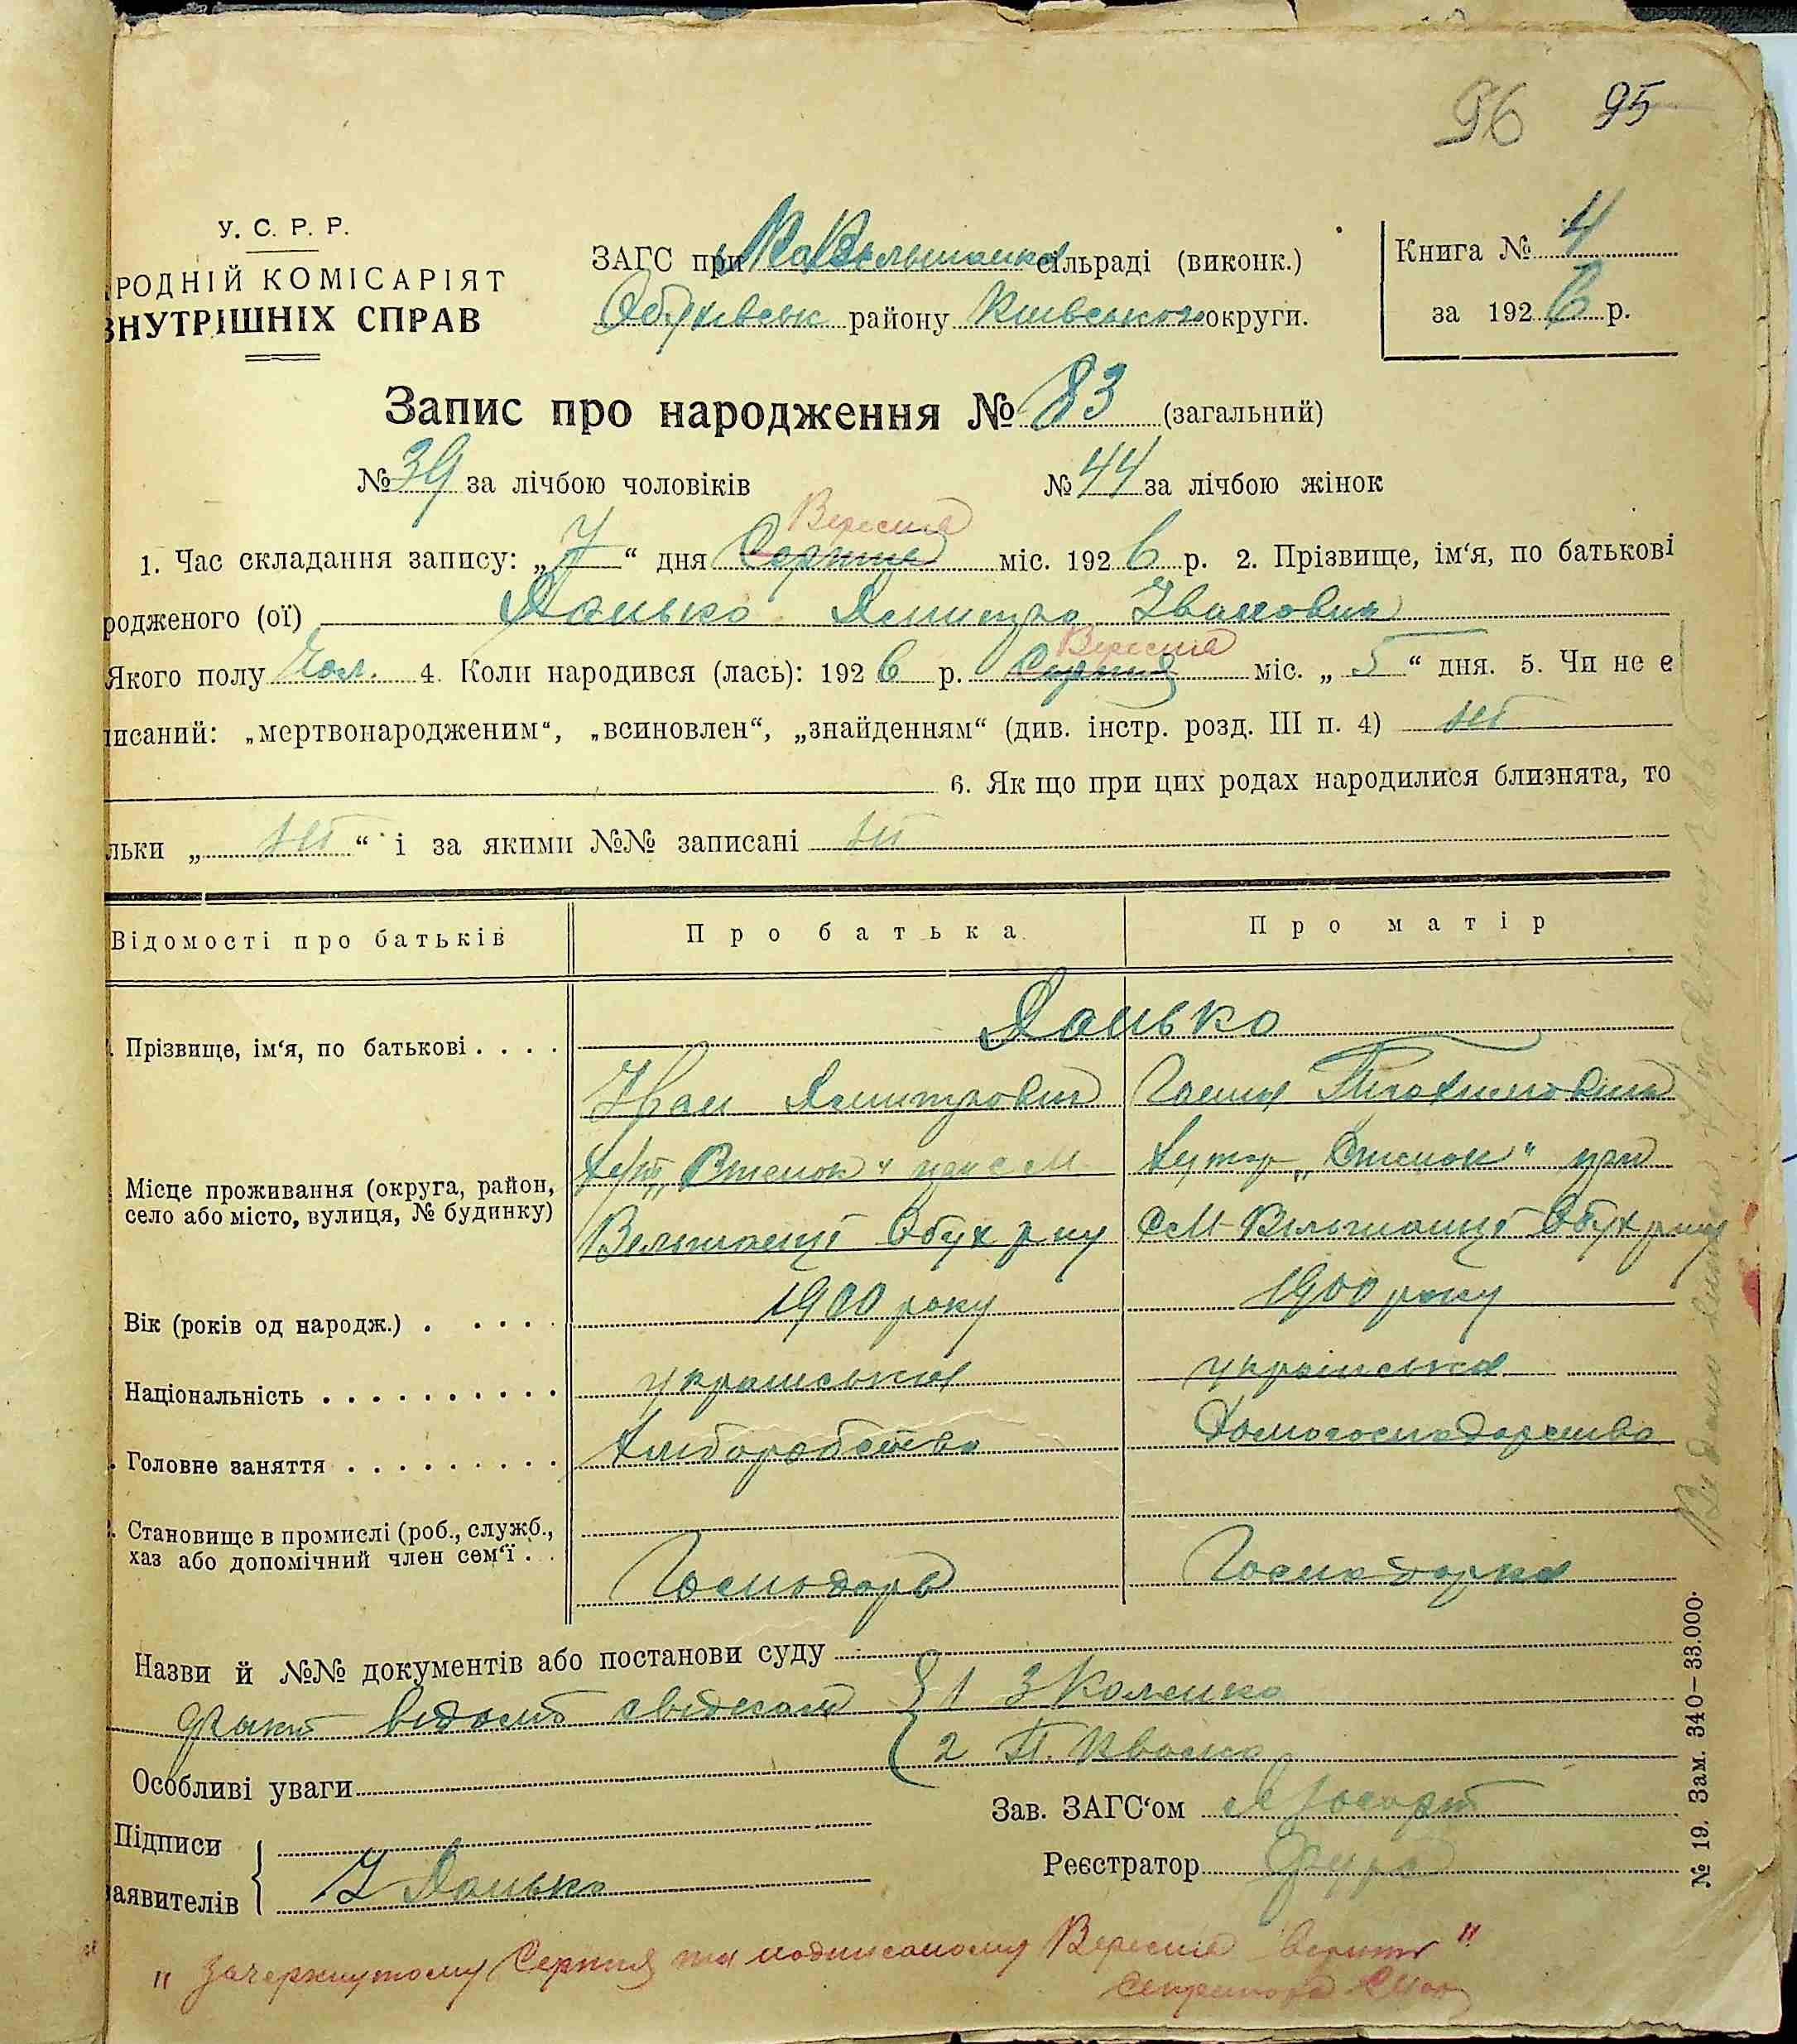 96 95
У. С. Р. Р.
РОДНІЙ КОМІСАРІЯТ
ВНУТРІШНІХ СПРАВ
ЗАГС при сільраді (виконк.)
Обухівськ району Київського округи.
Книга № 4
за 1926 р.
Запис про народження № 83 (загальний)
№ 39 за лічбою чоловіків № 44 за лічбою жінок
Вересня
1. Час складання запису: „7“ дня Серпня міс. 1926 р. 2. Прізвище, ім‘я, по батькові
родженого (ої) Данько Дмитро Іванович
Вересня
Якого полу Чол. 4. Коли народився (лась): 1926 р. Серпня міс. „5“ дня. 5. Чи не є
писаний: „мертвонародженим“, „всиновлен“, „знайденням“ (див. інстр. розд. III п. 4) ні
6. Як що при цих родах народилися близнята, то
льки „ні“ і за якими №№ записані ні
Відомості про батьків Про батька Про матір
Данько
Прізвище, ім‘я, по батькові . . . .
Іван Дмитрович Ганна
хут. при с М хутор при
Місце проживання (округа, район,
село або місто, вулиця, № будинку)
Вільшанці Обух р-ну С М-Вільшанці Обух р-ну
Вік (років од народж.) . . . . . 1900 року 1900 року
Національність . . . . . . . . . . українська українська
Головне заняття . . . . . . . . . Хліборобство Домогосподарство
Становище в промислі (роб., служб.,
хаз або допомічний член сем‘ї . . Господарь Господарка
Назви й №№ документів або постанови суду
відомі свідкам { 1 З Коленко
2 П. Квашa
Особливі уваги
Зав. ЗАГС‘ом
Підписи
заявителів { І Данько
Реєстратор
№ 19. Зам. 340–33.000.
" Зачеркнутому Серпня та надписаному Вересня вірить "